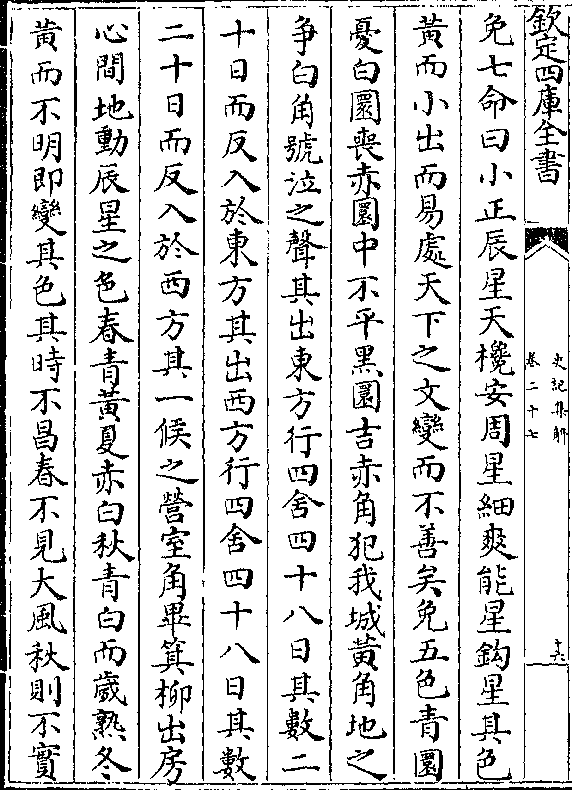 欽定四庫全書
史記集解
卷二十七
十六
免七命曰小正辰星天欃安周星細爽能星鈎星其色
黃而小出而易處天下之文變而不善矣免五色青圜
憂白圜喪赤圜中不平黑圜吉赤角犯我城黃角地之
爭白角號泣之聲其出東方行四舍四十八日其數二
十日而反入於東方其出西方行四舍四十八日其數
二十日而反入於西方其一候之營室角畢箕柳出房
心間地動辰星之色春青黃夏赤白秋青白而歲熟冬
黃而不明即變其色其時不昌春不見大風秋則不實